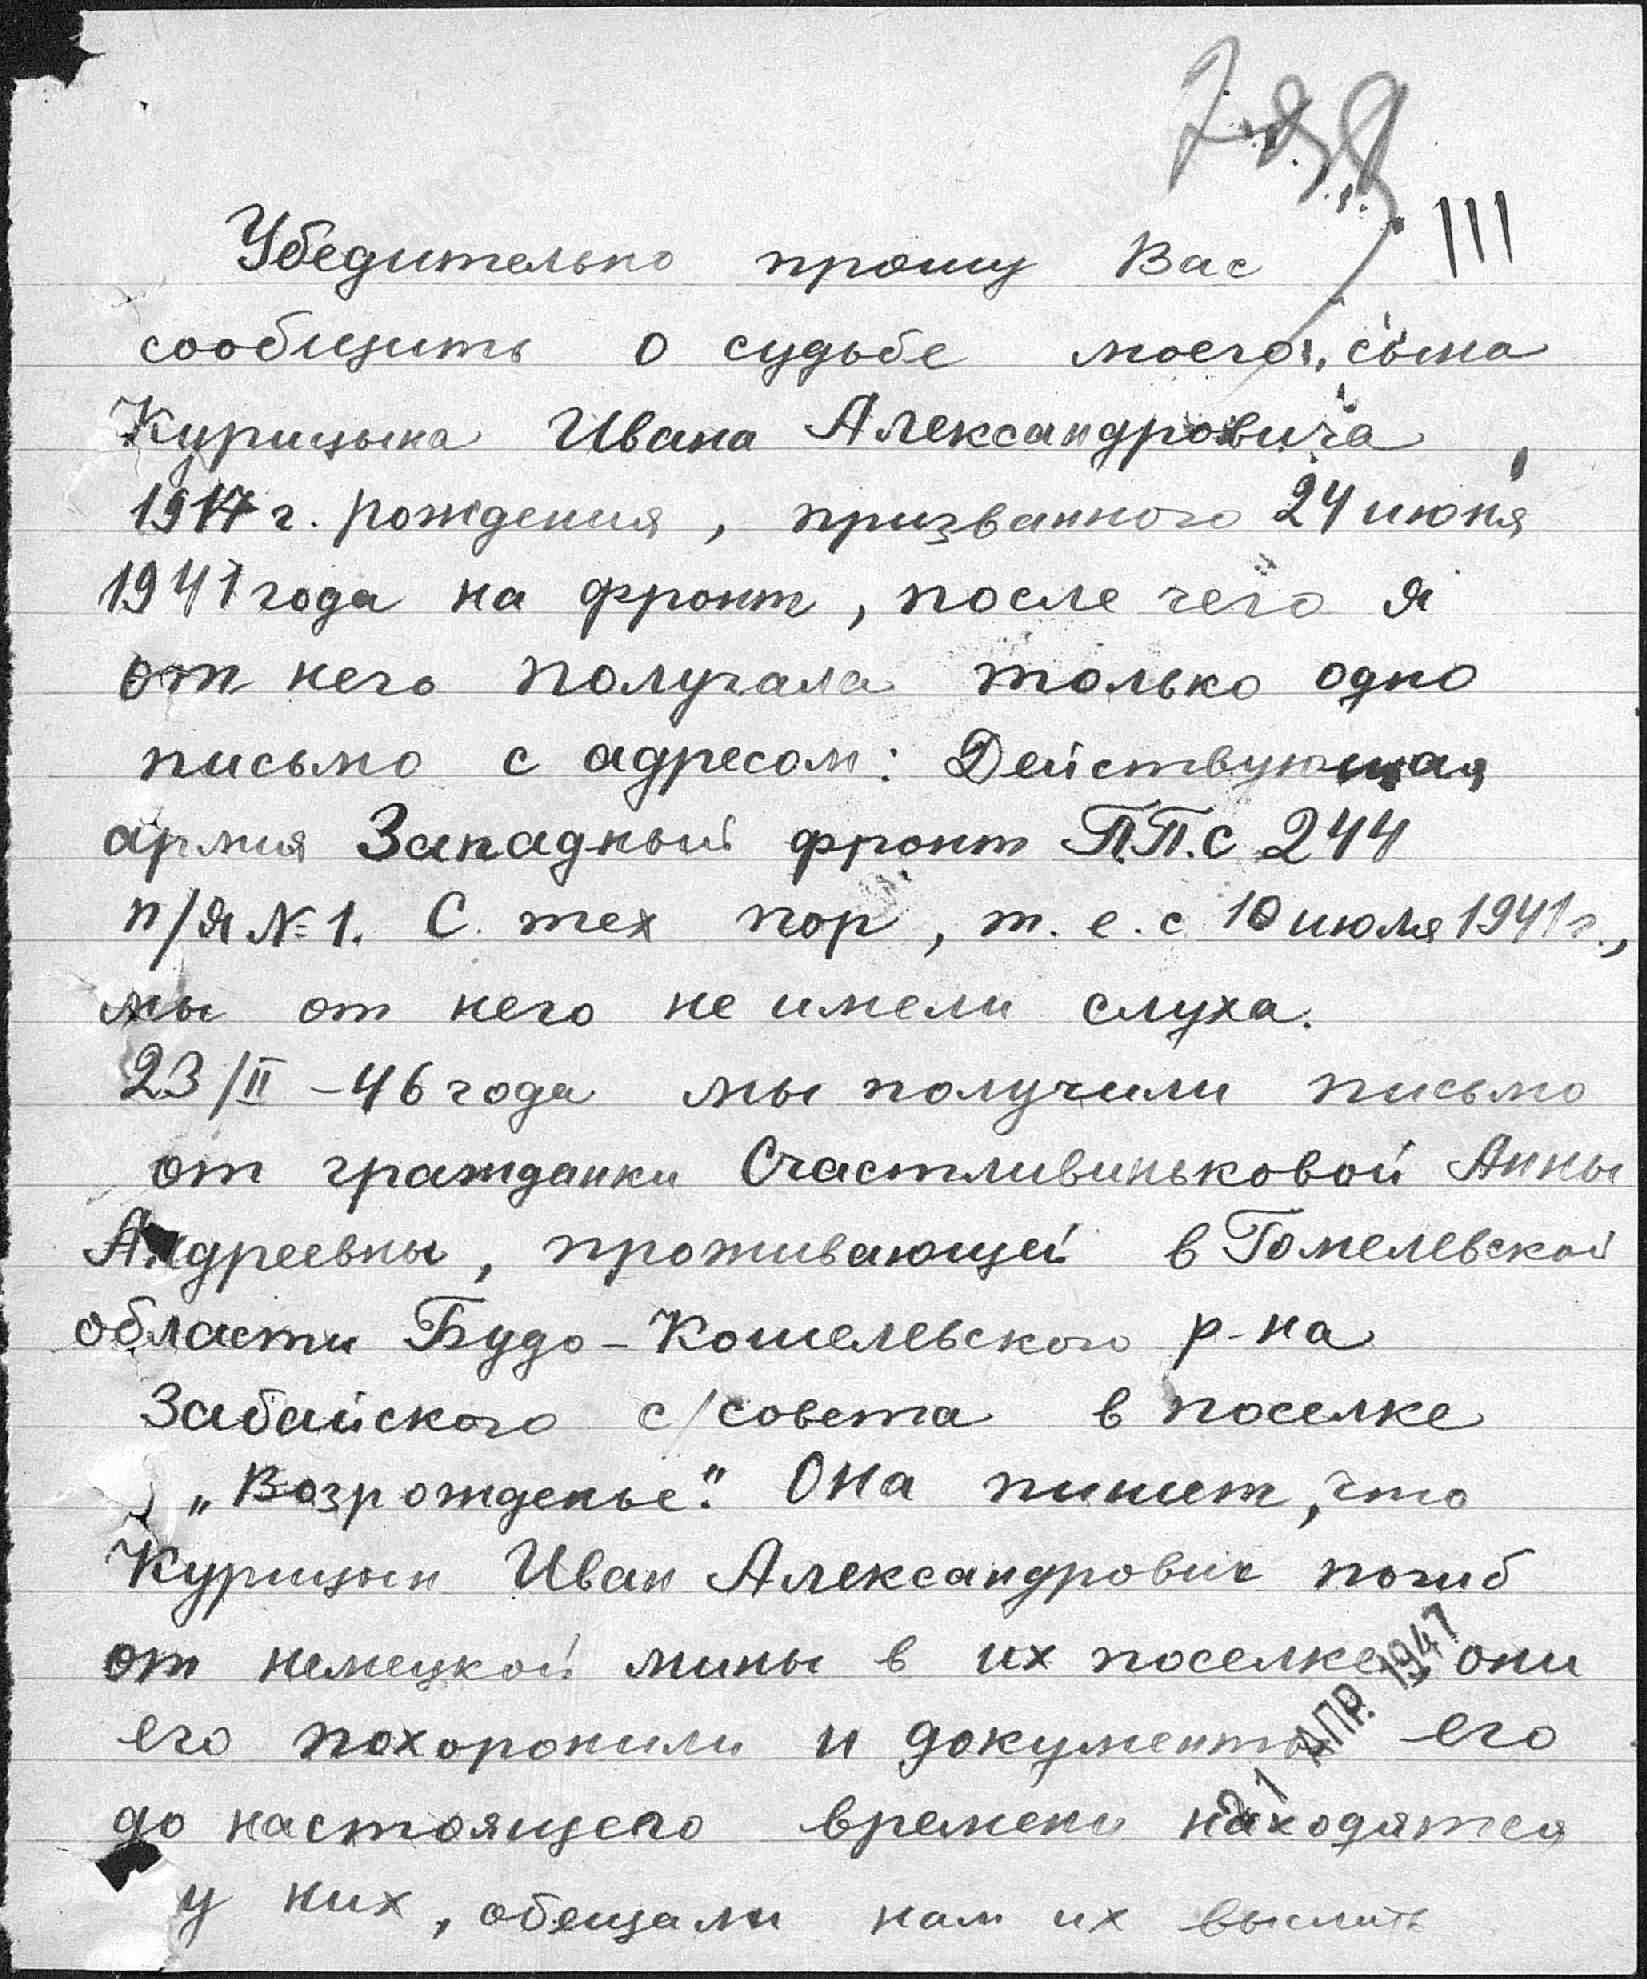 III
Убедительно прошу Вас
сообщить о судьбе моего сына
Курицына Ивана Александровича
1917 г. рождения, призванного 24 июня
1941 года на фронт, после чего я
от него получала только одно
письмо с адресом: Действующая
армия Западный фронт П.П.С 244
п/я № 1. С тех пор, т.е. с 10 июля 1941 г.,
мы от него не имели слуха.
23/II -46 года мы получили письмо
от гражданки Счастливиньковой Анны
Андреевны, проживающей в Гомелевской
области Будо-Кошелевского р-на
Забайского с/совета в поселке
„Возрожденье". Она пишет, что
Курицын Иван Александрович погиб
от немецкой мины в их поселке, они
его похоронили и документы его
до настоящего времени находятся
у них, обещали нам их выслать
21 АПР. 1947